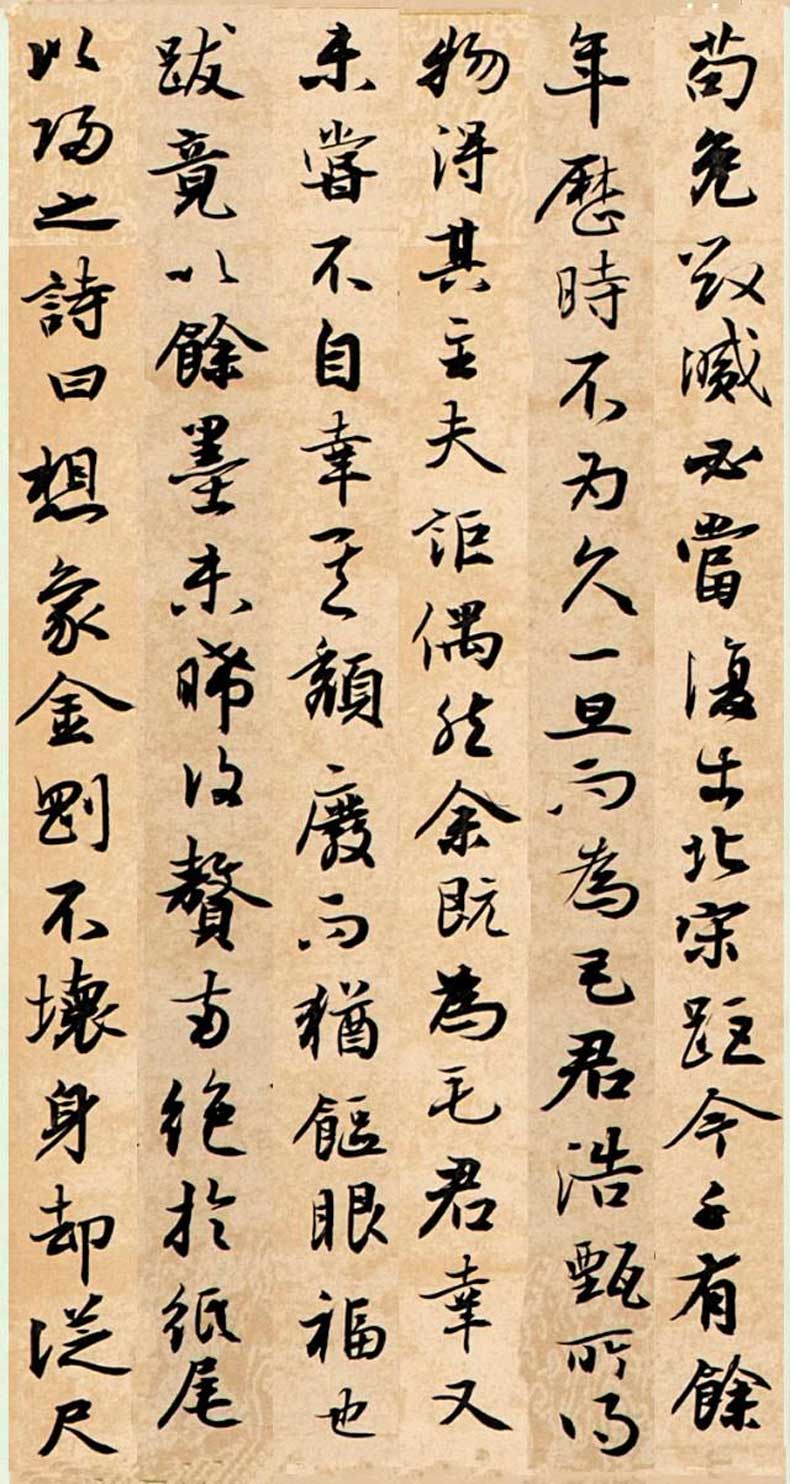 苟免毀滅必當復出北宋距今千有餘
年歷時不为久一旦而為毛君浩甄所得
物得其主夫詎偶然余既為毛君幸又
未嘗不自幸其頹廢而猶饇眼福也
跋竟以餘墨未晞贅两絕於紙尾
以歸之詩曰想象金剛不壞身却從尺